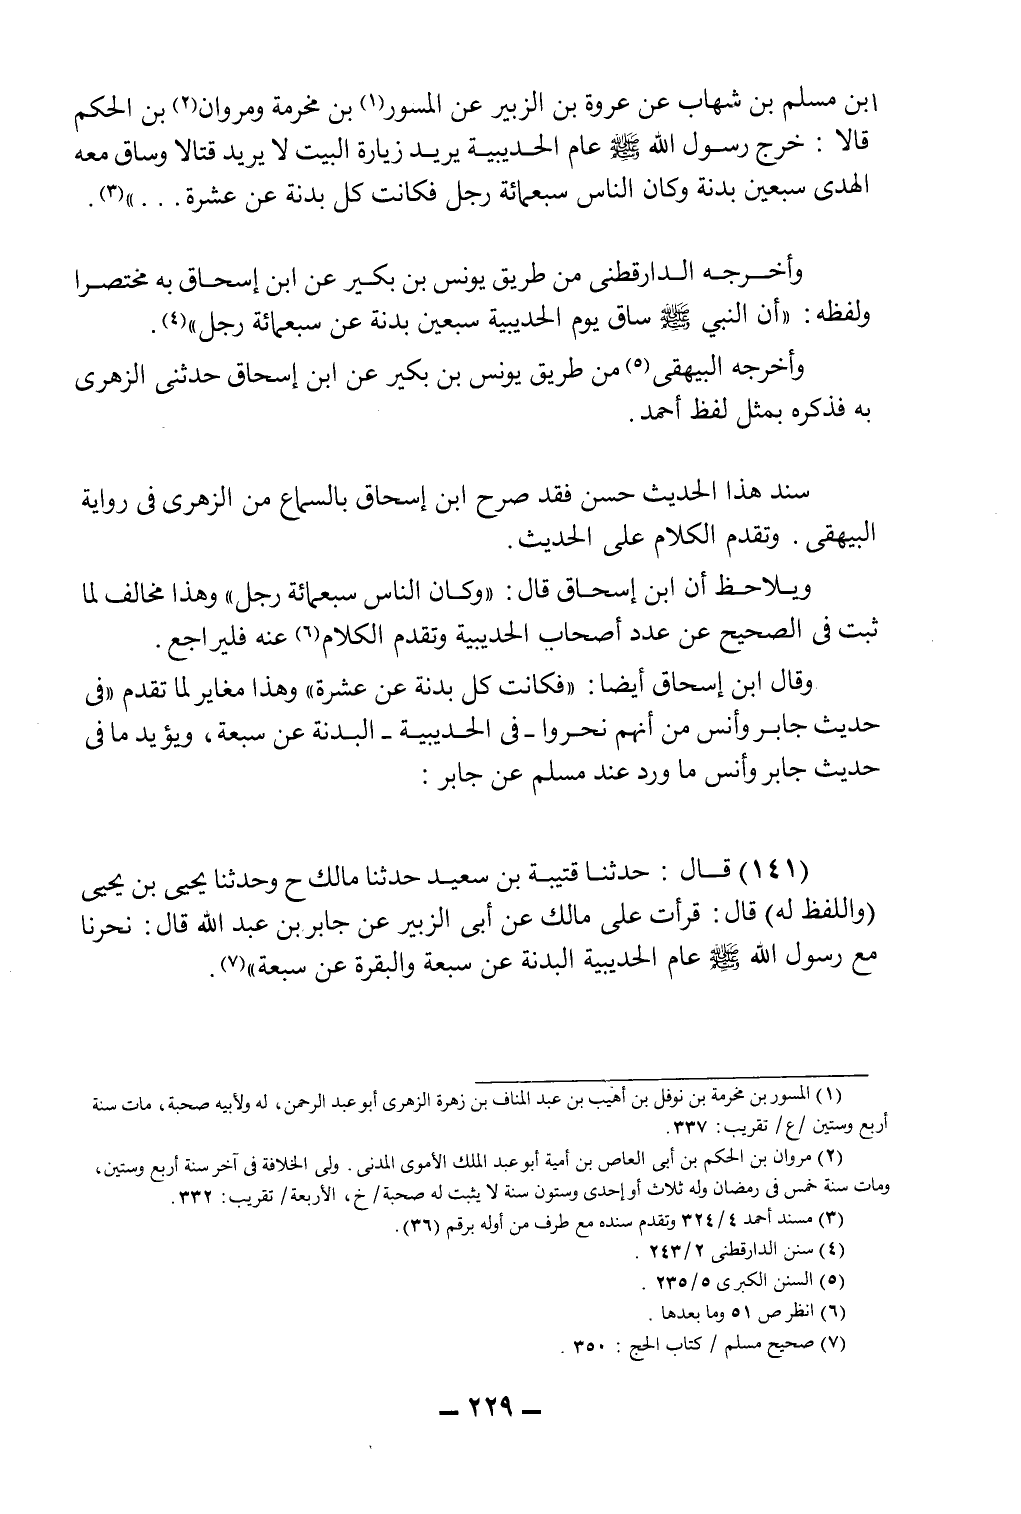 ابن مسلم بن شهاب عن عروة بن الزبير عن المسور(١) بن مخرمة ومروان(٢) بن الحكم
قالا : خرج رسول الله ﷺ عام الحديبية يريد زيارة البيت لا يريد قتالا وساق معه
الهدى سبعين بدنة وكان الناس سبعمائة رجل فكانت كل بدنة عن عشرة. . .»(٣).
وأخرجه الدارقطنى من طريق يونس بن بكير عن ابن إسحاق به مختصرا
ولفظه: «أن النبي ﷺ ساق يوم الحديبية سبعين بدنة عن سبعمائة رجل»(٤).
وأخرجه البيهقى(٥) من طريق يونس بن بكير عن ابن إسحاق حدثنى الزهرى
به فذكره بمثل لفظ أحمد.
سند هذا الحديث حسن فقد صرح ابن إسحاق بالسماع من الزهرى فى رواية
البيهقى . وتقدم الكلام على الحديث.
ويلاحظ أن ابن إسحاق قال: «وكان الناس سبعمائة رجل» وهذا مخالف لما
ثبت فى الصحيح عن عدد أصحاب الحديبية وتقدم الكلام(٦) عنه فليراجع.
وقال ابن إسحاق أيضا: «فكانت كل بدنة عن عشرة» وهذا مغاير لما تقدم «فى
حديث جابر وأنس من أنهم نحروا ـ فى الحديبية ـ البدنة عن سبعة، ويؤيد ما فى
حديث جابر وأنس ما ورد عند مسلم عن جابر :
(١٤١) قال : حدثنا قتيبة بن سعيد حدثنا مالك ح وحدثنا يحيى بن يحيى
(واللفظ له) قال: قرأت على مالك عن أبى الزبير عن جابر بن عبد الله قال: نحرنا
مع رسول الله ﷺ عام الحديبية البدنة عن سبعة والبقرة عن سبعة»(٧).
(١) المسور بن مخرمة بن نوفل بن أهيب بن عبد المناف بن زهرة الزهرى أبو عبد الرحمن، له ولأبيه صحبة، مات سنة
أربع وستين /ع/ تقريب: ٣٣٧.
(٢) مروان بن الحكم بن أبى العاص بن أمية أبو عبد الملك الأموى المدنى . ولى الخلافة فى آخر سنة أربع وستين،
ومات سنة خمس فى رمضان وله ثلاث أو إحدى وستون سنة لا يثبت له صحبة/ خ، الأربعة/ تقريب: ٣٣٢.
(٣) مسند أحمد ٤/ ٣٢٤ وتقدم سنده مع طرف من أوله برقم (٣٦).
(٤) سنن الدارقطنى ٢/ ٢٤٣ .
(٥) السنن الكبرى ٥/ ٢٣٥ .
(٦) انظر ص ٥١ وما بعدها .
(٧) صحيح مسلم / كتاب الحج : ٣٥٠ .
ـ ٢٢٩ ـ